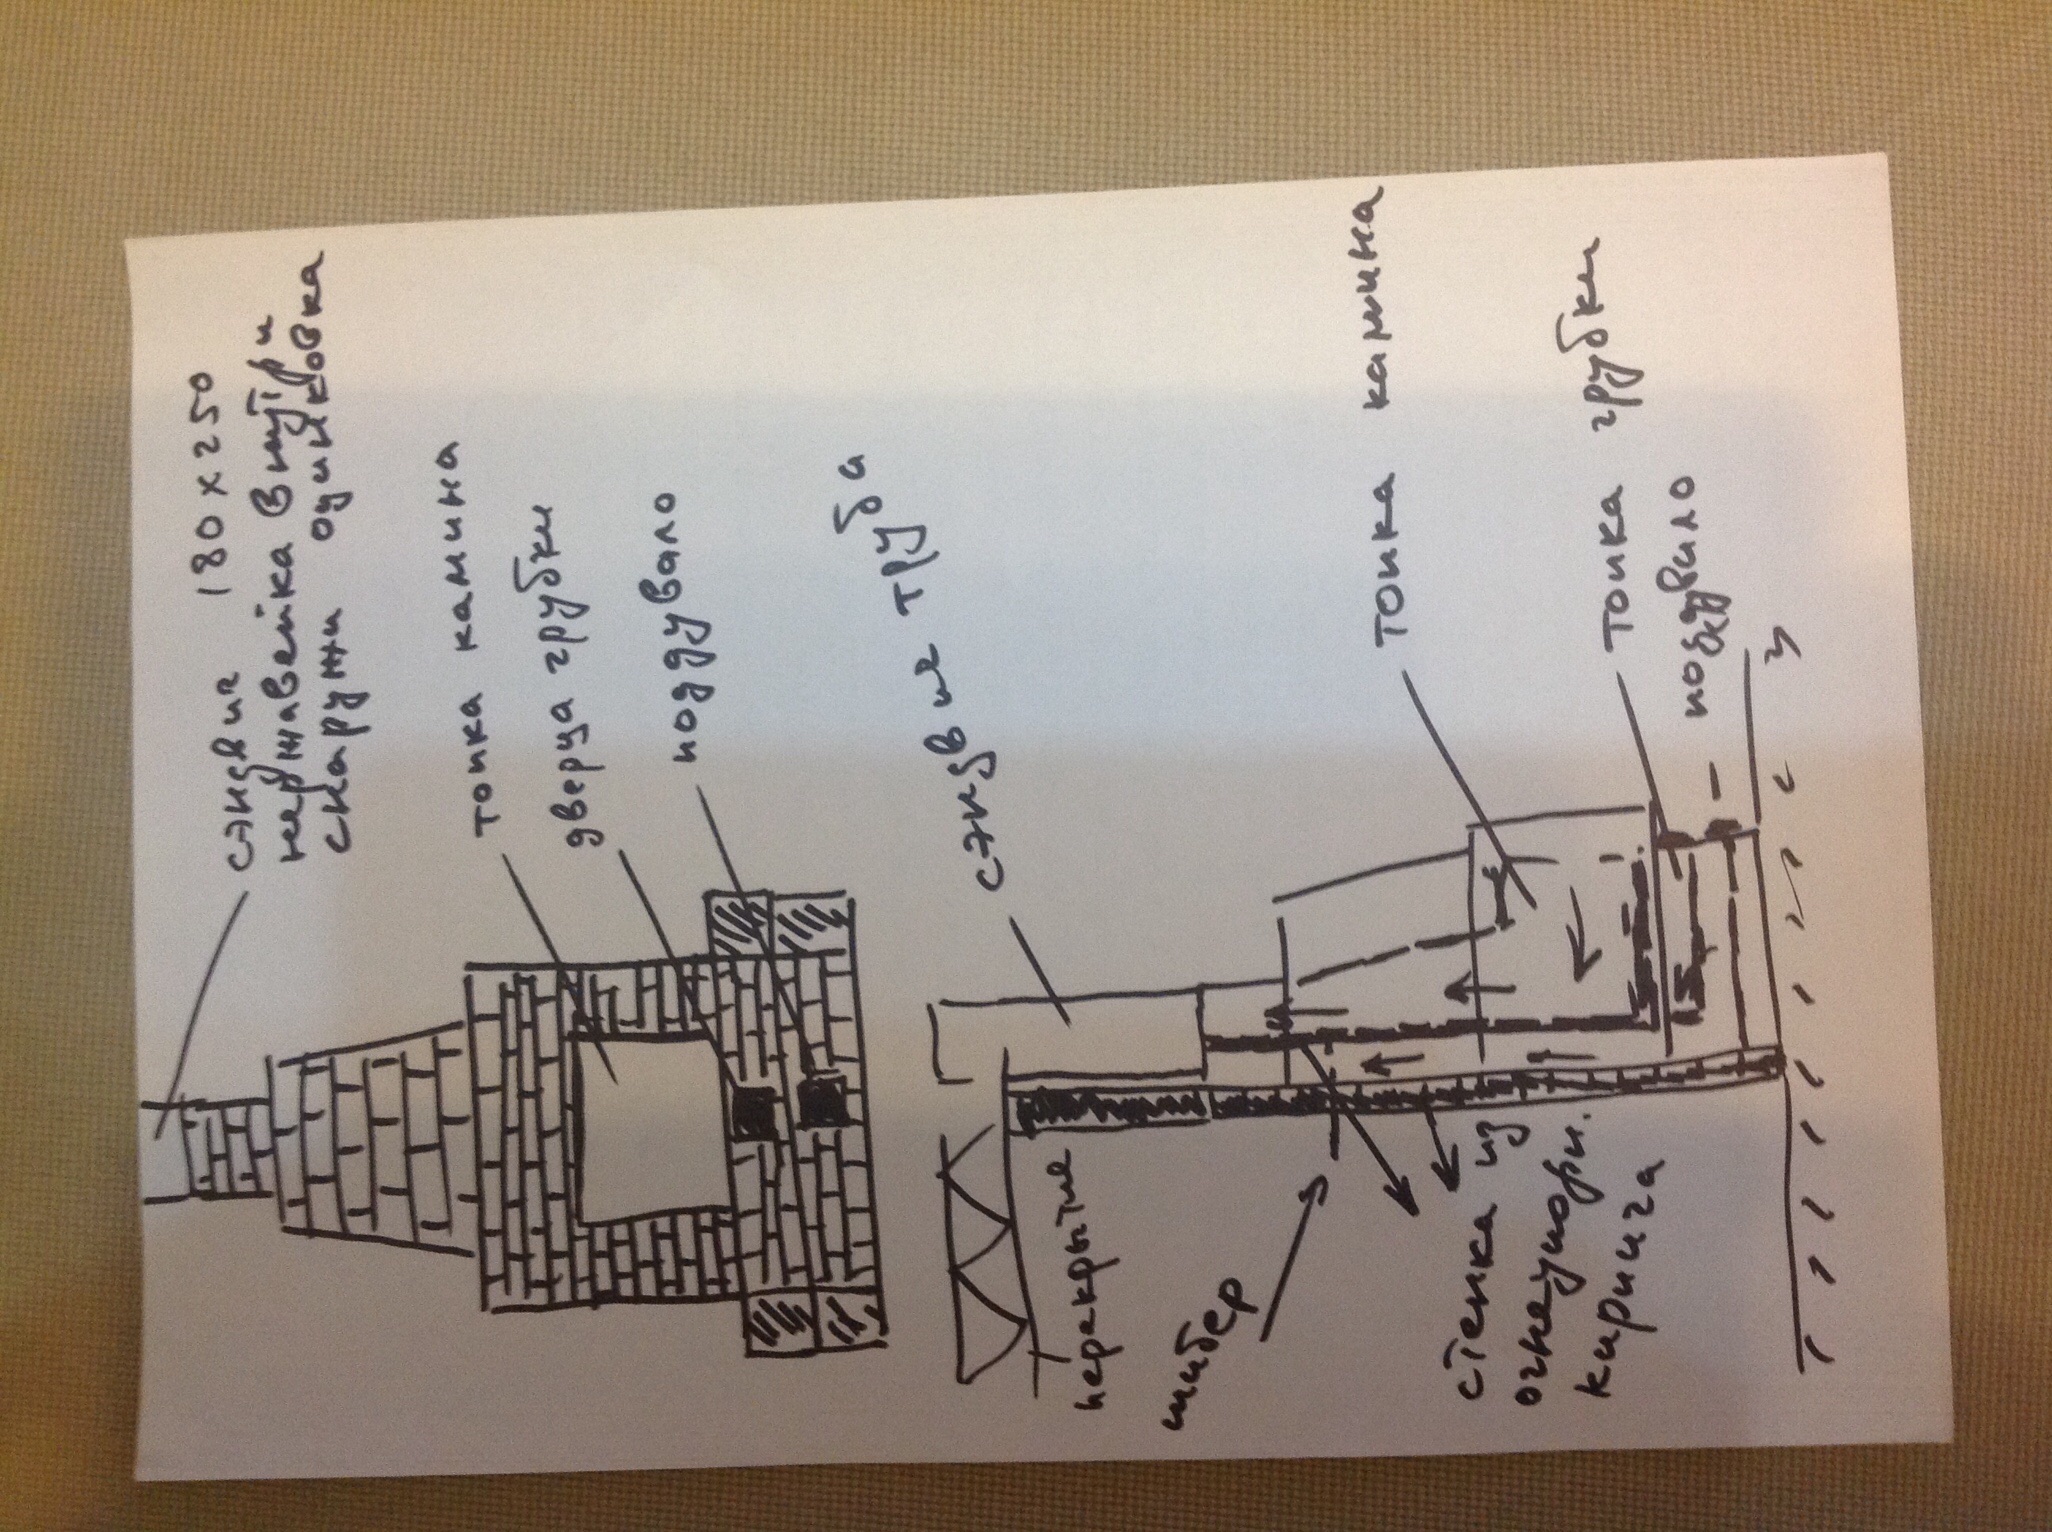 сэндвич 180 х 250
нержавейка внутри
снаружи оцинковка
топка камина
дверца грубки
поддувало
сэндвич труба
перекрытие
шибер
топка камина
топка грубки
поддувало
стенка из
огнеупорн.
кирпича